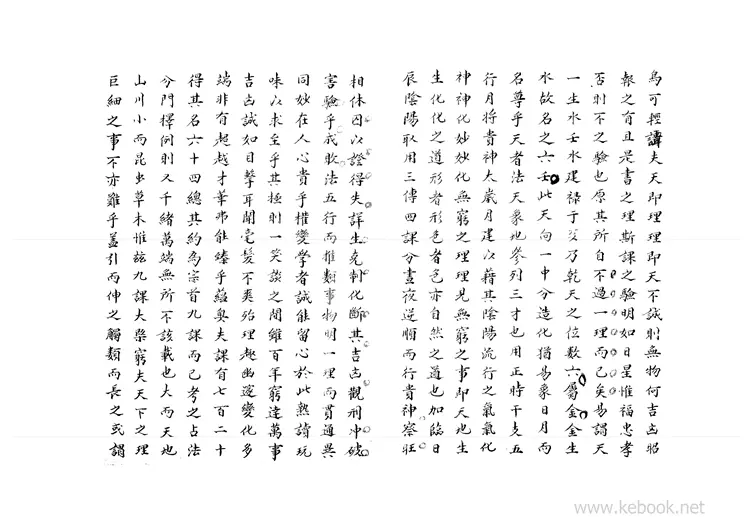 為可輕譚夫天即理理即天不誠則無物何吉凶昭
報之有且是書之理斯課之驗明如日星惟福忠孝
否則不之驗也原其所自不過一理而已矣易謂天
一生水壬水建祿于亥乃乾天之位數六屬金金生
水故名之六壬此天向一中分造化猶易象日月而
名尊乎天者法天象地參列三才也用正時干支五
行月將貴神太歲月建以藉其陰陽流行之氣氣化
神神化妙妙化無窮之理理見無窮之事即天地生
生化化之道形者形色者色亦自然之道也加臨日
辰陰陽取用三傳四課分晝夜逆順而行貴神察旺
相休囚以證得失詳生尅制化斷其吉凶觀刑冲破
害驗乎成敗法五行而推類事物明一理而貫通異
同妙在人心貴乎權變學者誠能留心於此熟讀玩
味以求至乎其極則一笑談之間雖百年窮達萬事
吉凶誠如目擊耳聞毫髮不爽殆理趣幽邃變化多
端非有超越才華弗能臻乎蘊奥夫課有七百二十
得其名六十四總其約為宗首九課而已考之占法
分門擇例則又千緒萬端無所不該載也大而天地
山川小而昆虫草木惟茲九課大槩窮夫天下之理
巨細之事不亦難乎蓋引而伸之觸類而長之或謂
www.kebook.net